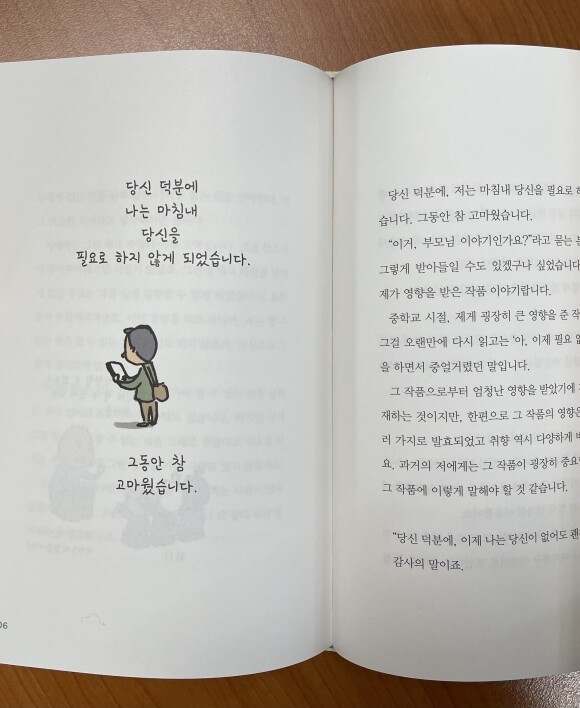 당신 덕분에
나는 마침내
당신을
필요로 하지 않게 되었습니다.
그동안 참
고마웠습니다.
06
당신 덕분에, 저는 마침내 당신을 필요로 하
습니다. 그동안 참 고마웠습니다.
“이거, 부모님 이야기인가요?”라고 묻는 분
그렇게 받아들일 수도 있겠구나 싶었습니다
제가 영향을 받은 작품 이야기랍니다.
중학교 시절, 제게 굉장히 큰 영향을 준 작
그걸 오랜만에 다시 읽고는 ‘아, 이제 필요 없
을 하면서 중얼거렸던 말입니다.
그 작품으로부터 엄청난 영향을 받았기에
재하는 것이지만, 한편으로 그 작품의 영향은
러 가지로 발효되었고 취향 역시 다양하게
요. 과거의 저에게는 그 작품이 굉장히 중요
그 작품에 이렇게 말해야 할 것 같습니다.
“당신 덕분에, 이제 나는 당신이 없어도 괜
감사의 말이죠.